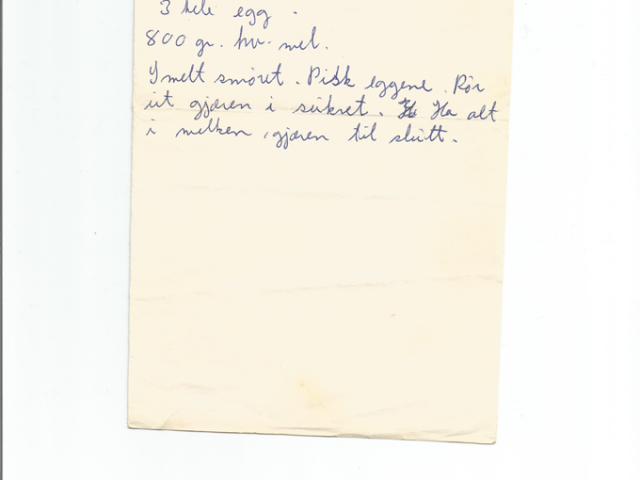 3 hele egg.
800 gr. hv. mel.
Smelt smøret. Pisk eggene. Rør
ut gjæren i sukret. Ha alt
i melken, gjæren til slutt.